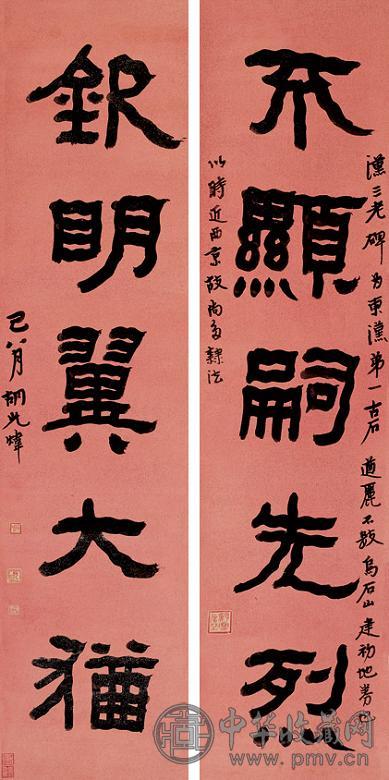 不顯嗣先烈
漢三老碑為東漢弟一古石遒麗不數烏石山建初地券也
以時近西京故尚多隸法
欽明翼大猶
己八月胡光煒
中华收藏网
www.pmv.cn